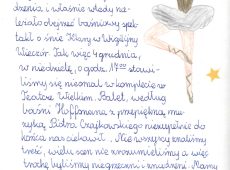 dzenia i właśnie wtedy na-
leżało obejrzeć baśniowy spek-
takl o śnie Klary w Wigilijny
Wieczór. Tak więc 4 grudnia,
w niedzielę, o godz. 17.00 stawi-
liśmy się niemal w komplecie w
Teatrze Wielkim. Balet, według
baśni Hoffmana z przepiękną mu-
zyką Piotra Czajkowskiego nie
do końca nas ciekawił. Nie wszyscy znaliśmy
treść, wielu scen nie zrozumieliśmy a więc
trochę byliśmy niegrzeczni i znudzeni. Mamy